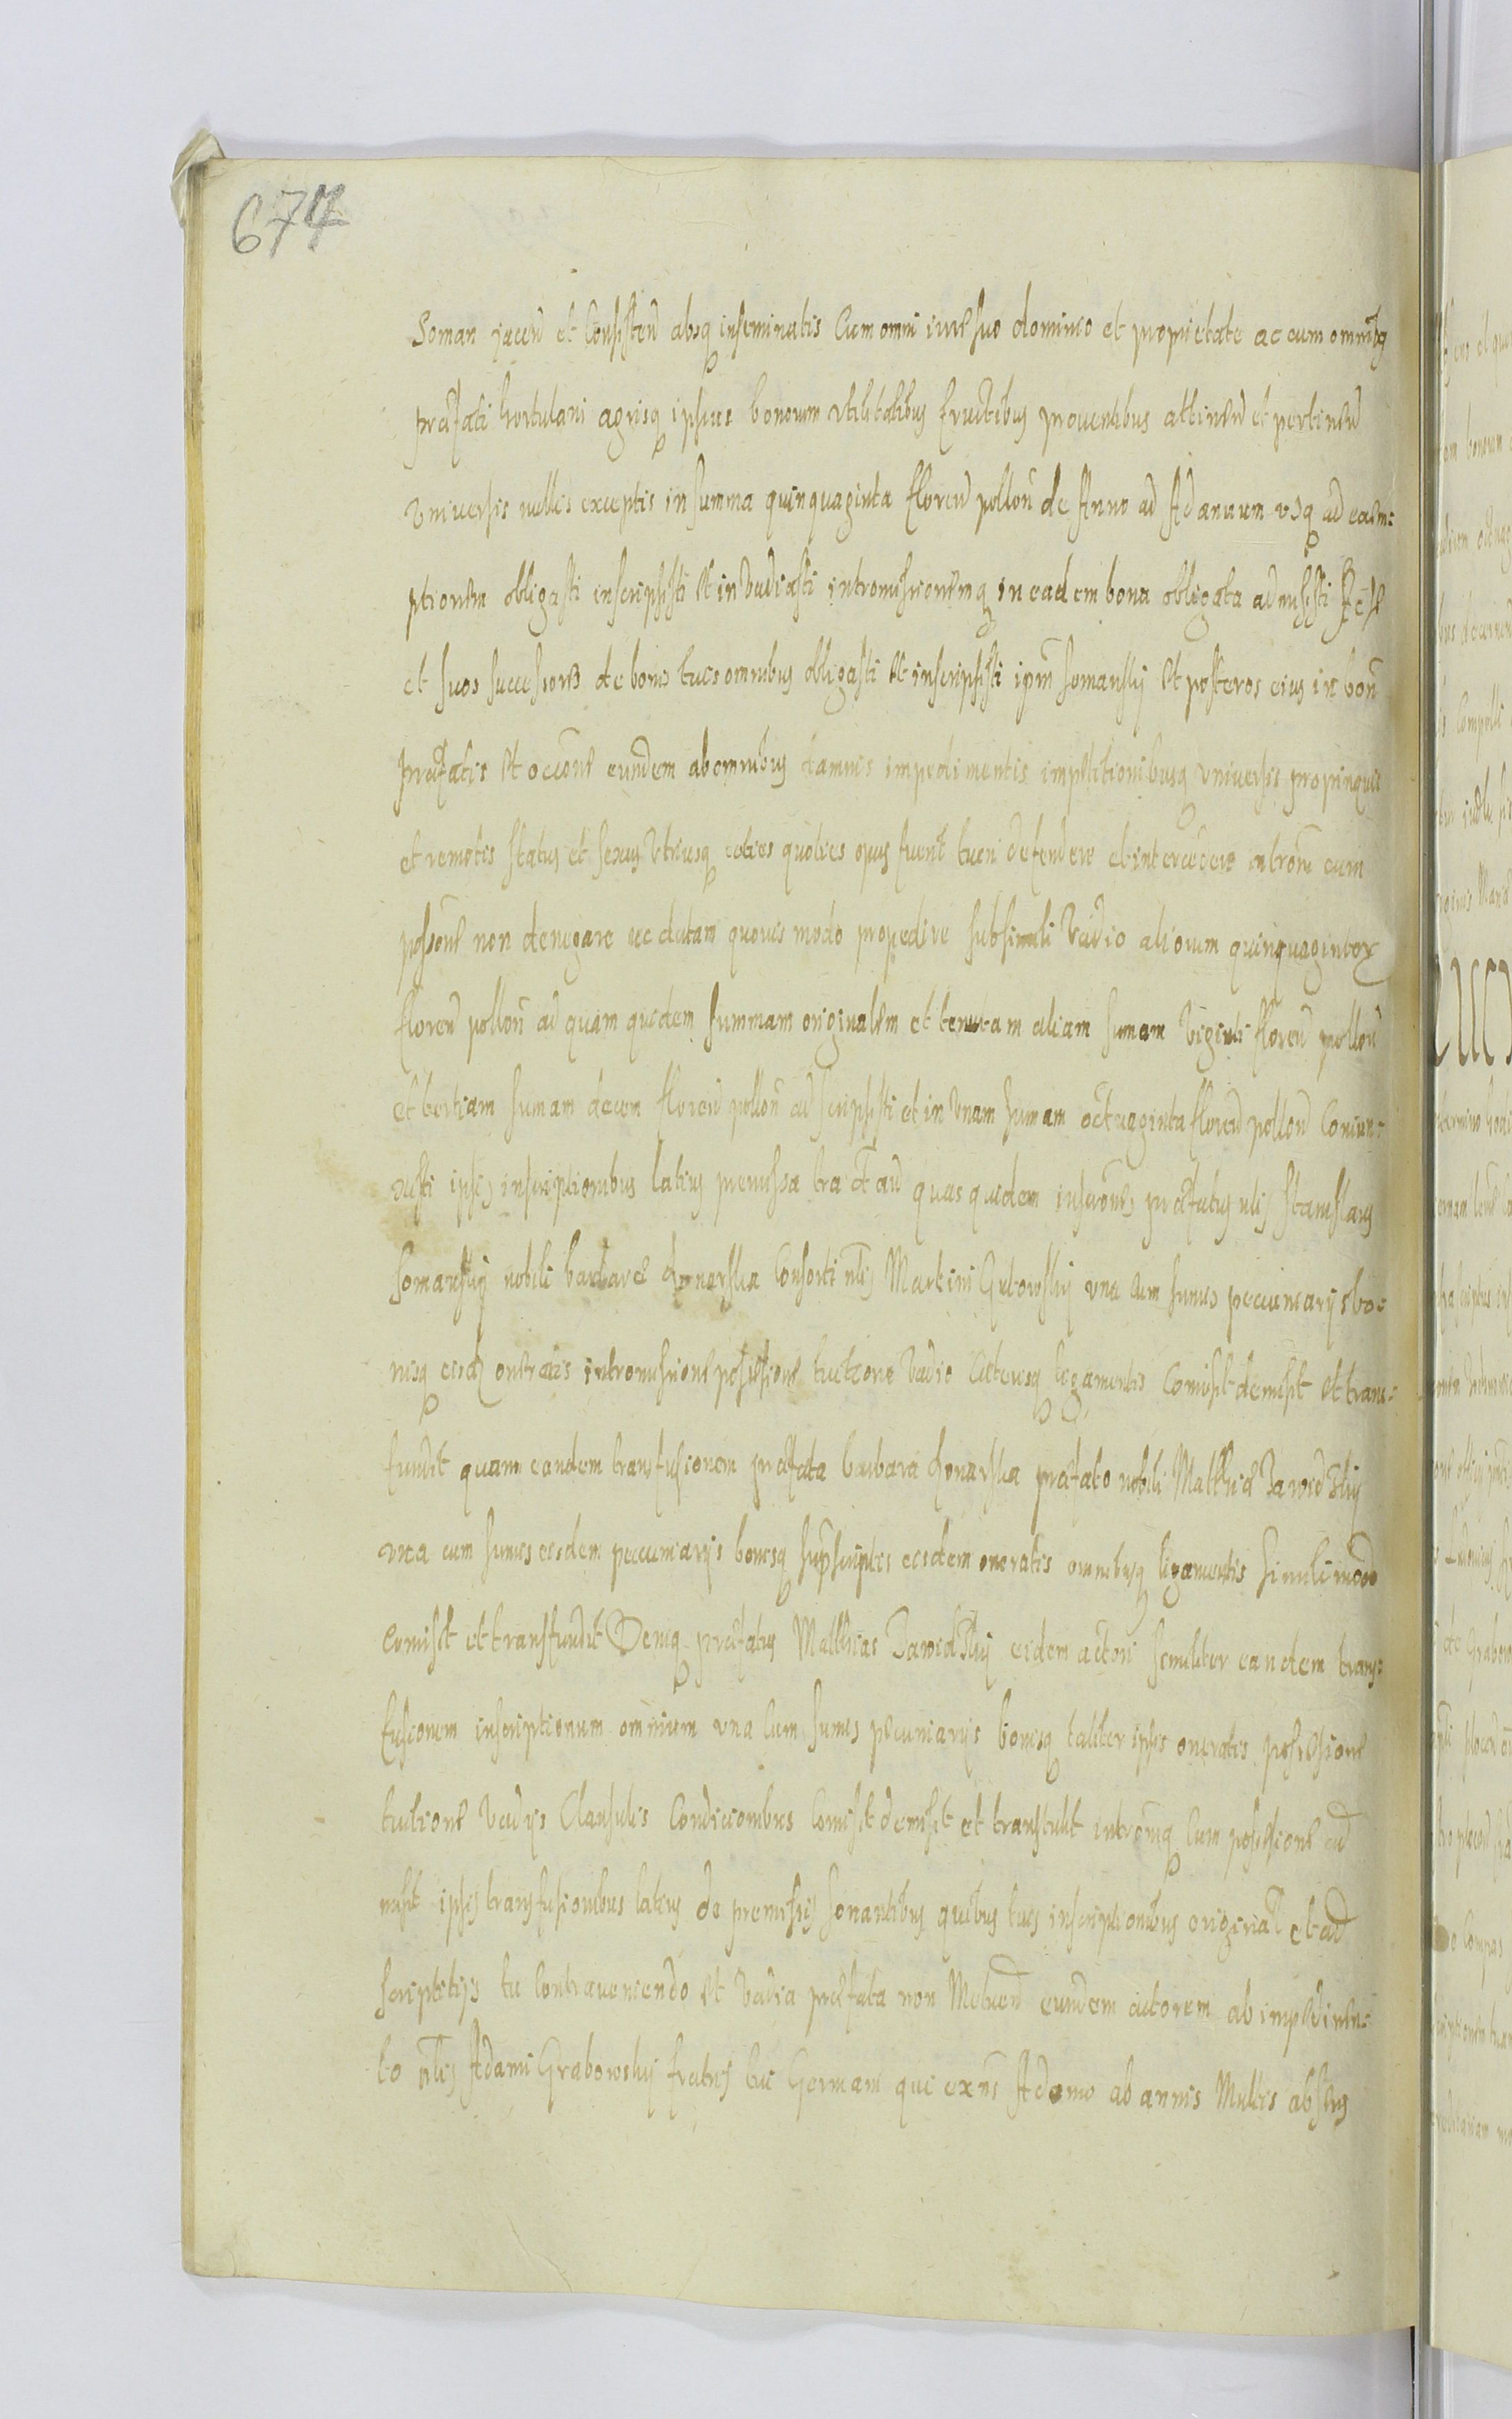 674
Soman jacen et consisten absq inseminatis Cum omni iure suo dominio et proprietate ac cum omnibq
præfati hortulani agrisq ipsius bonorum vtilitatibus fructibus prouentibus attinen et pertinen
Vniuersis nullis exceptis in summa quinquaginta floren pollon de Anno ad Adannum vsq ad exem=
ptionem obligasti inscripsisti et inVadiasti intromissionemq in eadem bona obligata admisisti
et suos successores de bonis tuis omnibus obligasti et inscripsisti ipm Somansky et posteros eius in bon
præfatis et occone eundem ab omnibus damnis impedimentis impetitionibusq vniuersis propinquis
et remotis status et sexus vtriusq toties quoties opus fuerit tueri defendere et intercedere introm eum
possone non denegare nec datam quouis modo propedire sub simili Vadio aliorum quinquaginta
floren pollon ad quam quidem summam originalem et tentam aliam sumam Viginti floren pollon
et tertiam sumam decem floren pollon adscripsisti et in Vnam sumam octuaginta floren pollon Coniun=
xisti ipsis inscriptionibus latius premissa tractan quas quidem inscrones præfatus nlis Stanislaus
Somansky nobili barbaræ konarska Consorti nlis Martini Gutowsky vna cum sumis pecuniarys bo=
nisq eisdem oneratis intromissione possessione tuitione Vadio Ceterisq ligamentis Comisit demisit et trans=
fundit quam eandem transfusionem præfata barbara konarska præfato nobili Mathiæ Jawidzky
vna cum sumis eisdem pecuniarys bonisq suprascriptis eisdem oneratis omnibusq ligamentis simili modo
Comisit et transfundit Deniq præfatus Mathias Jawidzky eidem actori similiter eandem trans=
fusionem inscriptionum omnium vna Cum sumis pecuniarys bonisq taliter ipsis oneratis possessione
tuitione Vadys Clausulis Condicionibus Comisit demisit et transtulit intromq Cum possessione ad
misit ipsis transfusionibus latius de premissis sonantibus quibus tuis inscriptionibus original et ad
scriptitys tu Contraueniendo et Vadia præfata non Metuen eundem actorem ab impedimen=
to nlis Adami Grabowsky fratris tui Germani qui exns Adamo ab annis Multis absens